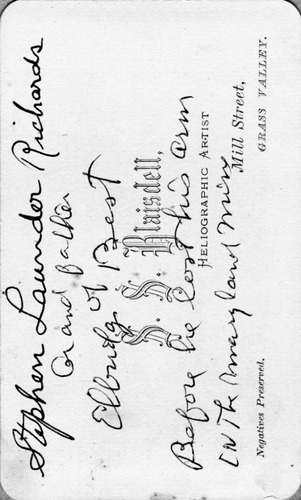 Stephen Launder Richards
Grand Father
of Best
H. S. Blaisdell,
Before he lost his arm
HELIOGRAPHIC ARTIST
in the Maryland Mine
Mill Street,
Negatives Preserved.
GRASS VALLEY.